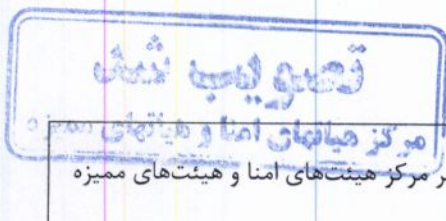 تصویب شد
مرکز هیاتهای امنا و هیاتهای ممیزه
ر مرکز هیئت‌های امنا و هیئت‌های ممیزه